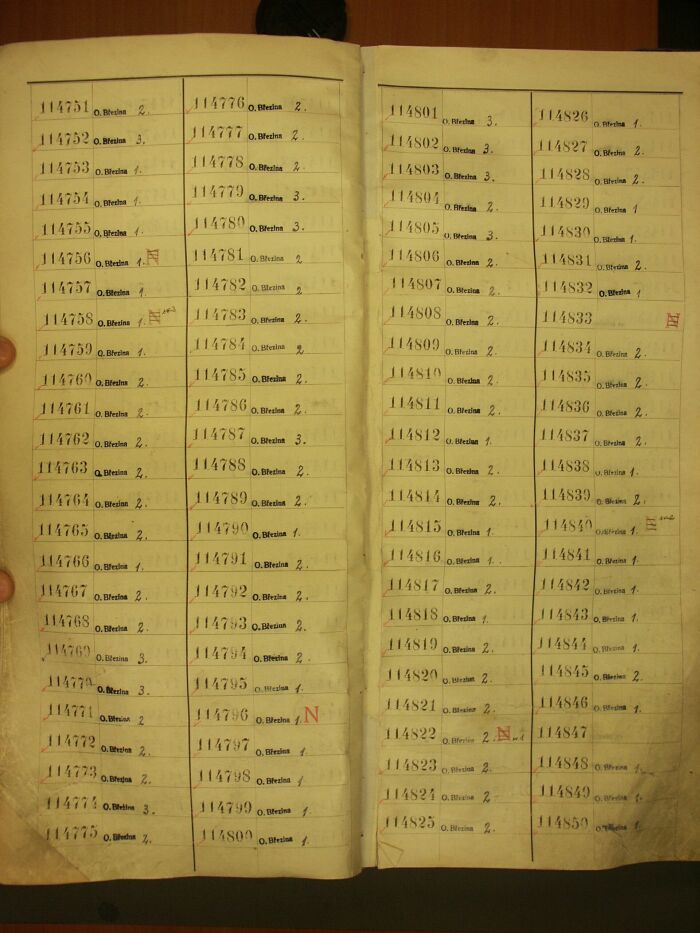 114751 O. Březina 2.
114752 O. Březina 3.
114753 O. Březina 1.
114754 O. Březina 1.
114755 O. Březina 1.
114756 O. Březina 1.
114757 O. Březina 1.
114758 O. Březina 1.
114759 O. Březina 1.
114760 O. Březina 2.
114761 O. Březina 2.
114762 O. Březina 2.
114763 O. Březina 2.
114764 O. Březina 2.
114765 O. Březina 2.
114766 O. Březina 1.
114767 O. Březina 2.
114768 O. Březina 2.
114769 O. Březina 3.
114770 O. Březina 3.
114771 O. Březina 2
114772 O. Březina 2.
114773 O. Březina 2.
114774 O. Březina 3.
114775 O. Březina 2.
114776 O. Březina 2.
114777 O. Březina 2.
114778 O. Březina 2.
114779 O. Březina 3.
114780 O. Březina 3.
114781 O. Březina 2
114782 O. Březina 2
114783 O. Březina 2.
114784 O. Březina 2
114785 O. Březina 2.
114786 O. Březina 2.
114787 O. Březina 3.
114788 O. Březina 2.
114789 O. Březina 2.
114790 O. Březina 1.
114791 O. Březina 2.
114792 O. Březina 2.
114793 O. Březina 2.
114794 O. Březina 2.
114795 O. Březina 1.
114796 O. Březina 1. N
114797 O. Březina 1.
114798 O. Březina 1.
114799 O. Březina 1.
114800 O. Březina 1.
114801 O. Březina 3.
114802 O. Březina 3.
114803 O. Březina 3.
114804 O. Březina 2.
114805 O. Březina 3.
114806 O. Březina 2.
114807 O. Březina 2.
114808 O. Březina 2.
114809 O. Březina 2.
114810 O. Březina 2.
114811 O. Březina 2.
114812 O. Březina 1.
114813 O. Březina 2.
114814 O. Březina 2.
114815 O. Březina 1.
114816 O. Březina 1.
114817 O. Březina 2.
114818 O. Březina 1.
114819 O. Březina 2.
114820 O. Březina 2.
114821 O. Březina 2.
114822 O. Březina 2. N
114823 O. Březina 2.
114824 O. Březina 2
114825 O. Březina 2.
114826 O. Březina 1.
114827 O. Březina 2.
114828 O. Březina 2.
114829 O. Březina 1
114830 O. Březina 1.
114831 O. Březina 2.
114832 O. Březina 1
114833
114834 O. Březina 2.
114835 O. Březina 2.
114836 O. Březina 2.
114837 O. Březina 2.
114838 O. Březina 1.
114839 O. Březina 2.
114840 O. Březina 1.
114841 O. Březina 1.
114842 O. Březina 1.
114843 O. Březina 1.
114844 O. Březina 1.
114845 O. Březina 2.
114846 O. Březina 1.
114847
114848 O. Březina 1.
114849 O. Březina 1.
114850 O. Březina 1.